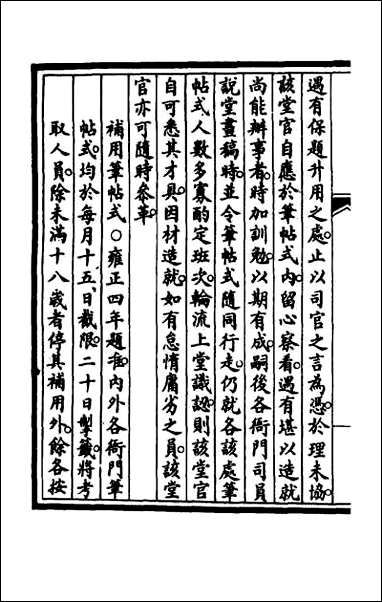 遇有保題升用之處。止以司官之言為憑。於理未協。
該堂官自應於筆帖式內。留心察看。遇有堪以造就
尚能辦事者。時加訓勉。以期有成。嗣後各衙門司員
說堂畫稿時。並令筆帖式隨同行走。仍就各該處筆
帖式人數多寡。酌定班次。輪流上堂識認。則該堂官
自可悉其才具。因材造就。如有怠惰庸劣之員。該堂
官亦可隨時叅革。
補用筆帖式〇雍正四年題准。內外各衙門筆
帖式。均於每月十五日截限。二十日掣籤。將考
取人員。除未滿十八歲者停其補用外。餘各按